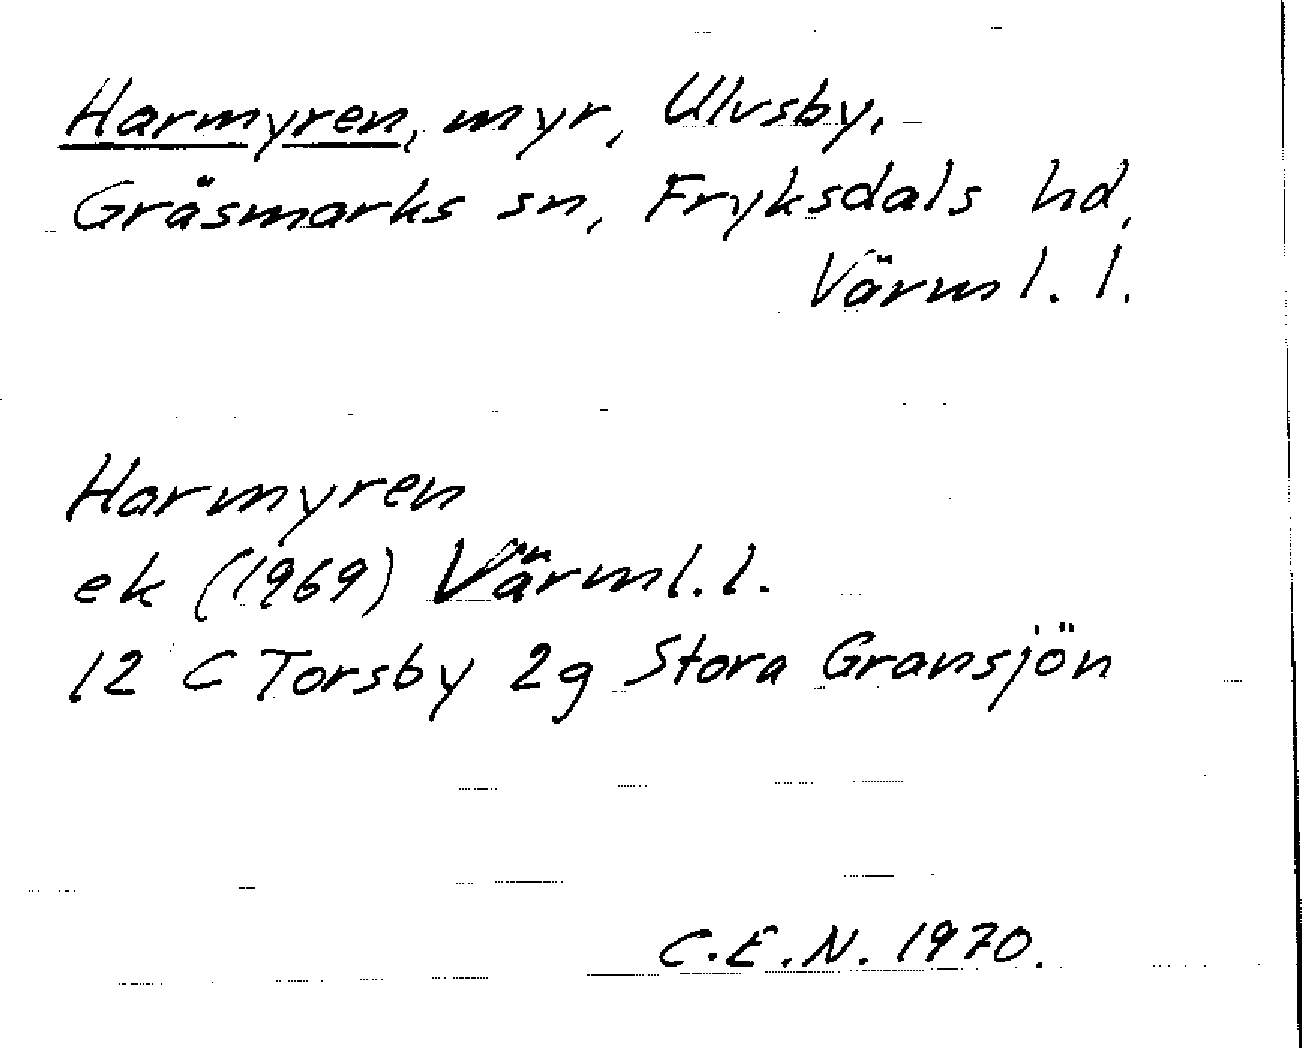 Harmyren, myr, Ulvsby,
Gräsmarks sn, Fryksdals hd,
Värml. l.
Harmyren
ek (1969) Värml. l.
12 C Torsby 2g Stora Gransjön
C.E.N. 1970.